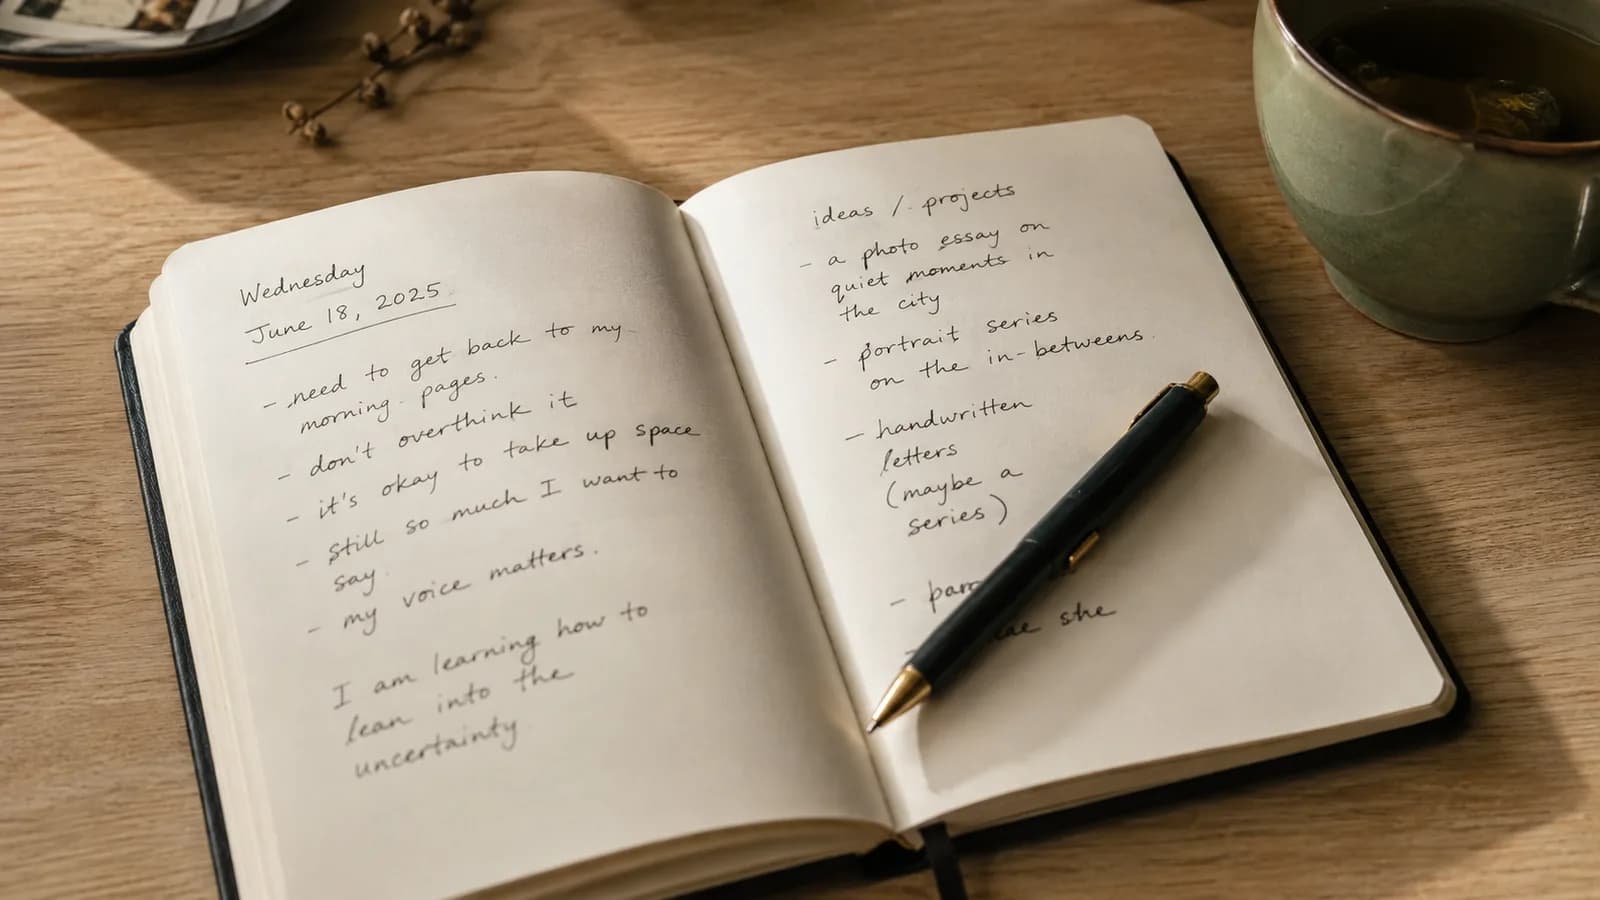 Wednesday
June 18, 2025
- need to get back to my
morning pages.
- don't overthink it
- it's okay to take up space
- still so much I want to
say.
- my voice matters.
I am learning how to
lean into the
uncertainty
ideas / projects
- a photo essay on
quiet moments in
the city
- portrait series
on the in-betweens.
- handwritten
letters
(maybe a
series)
-
- she